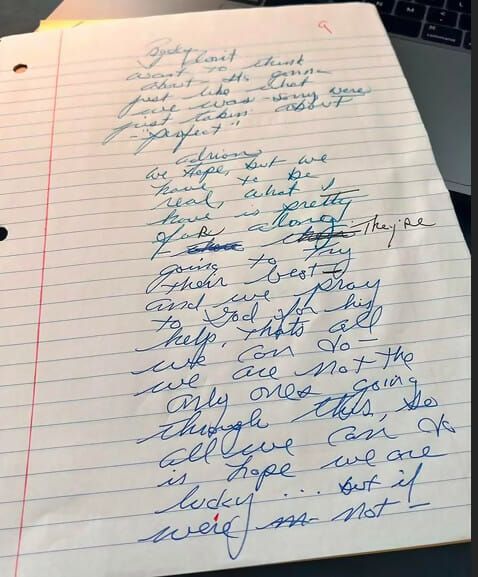 9
Rocky
don't
want to think
about its gonna
just like what
we was worry were
just takin' about
- "perfect"
Adrian
we hope, but we
have to be
real, what I
have is pretty
rare along.
- They're
going to try
their best -
and we pray
to God for his
help, thats all
we can do -
we are not the
only ones going
through this, so
all we can do
is hope we are
lucky ... but if
we're not -